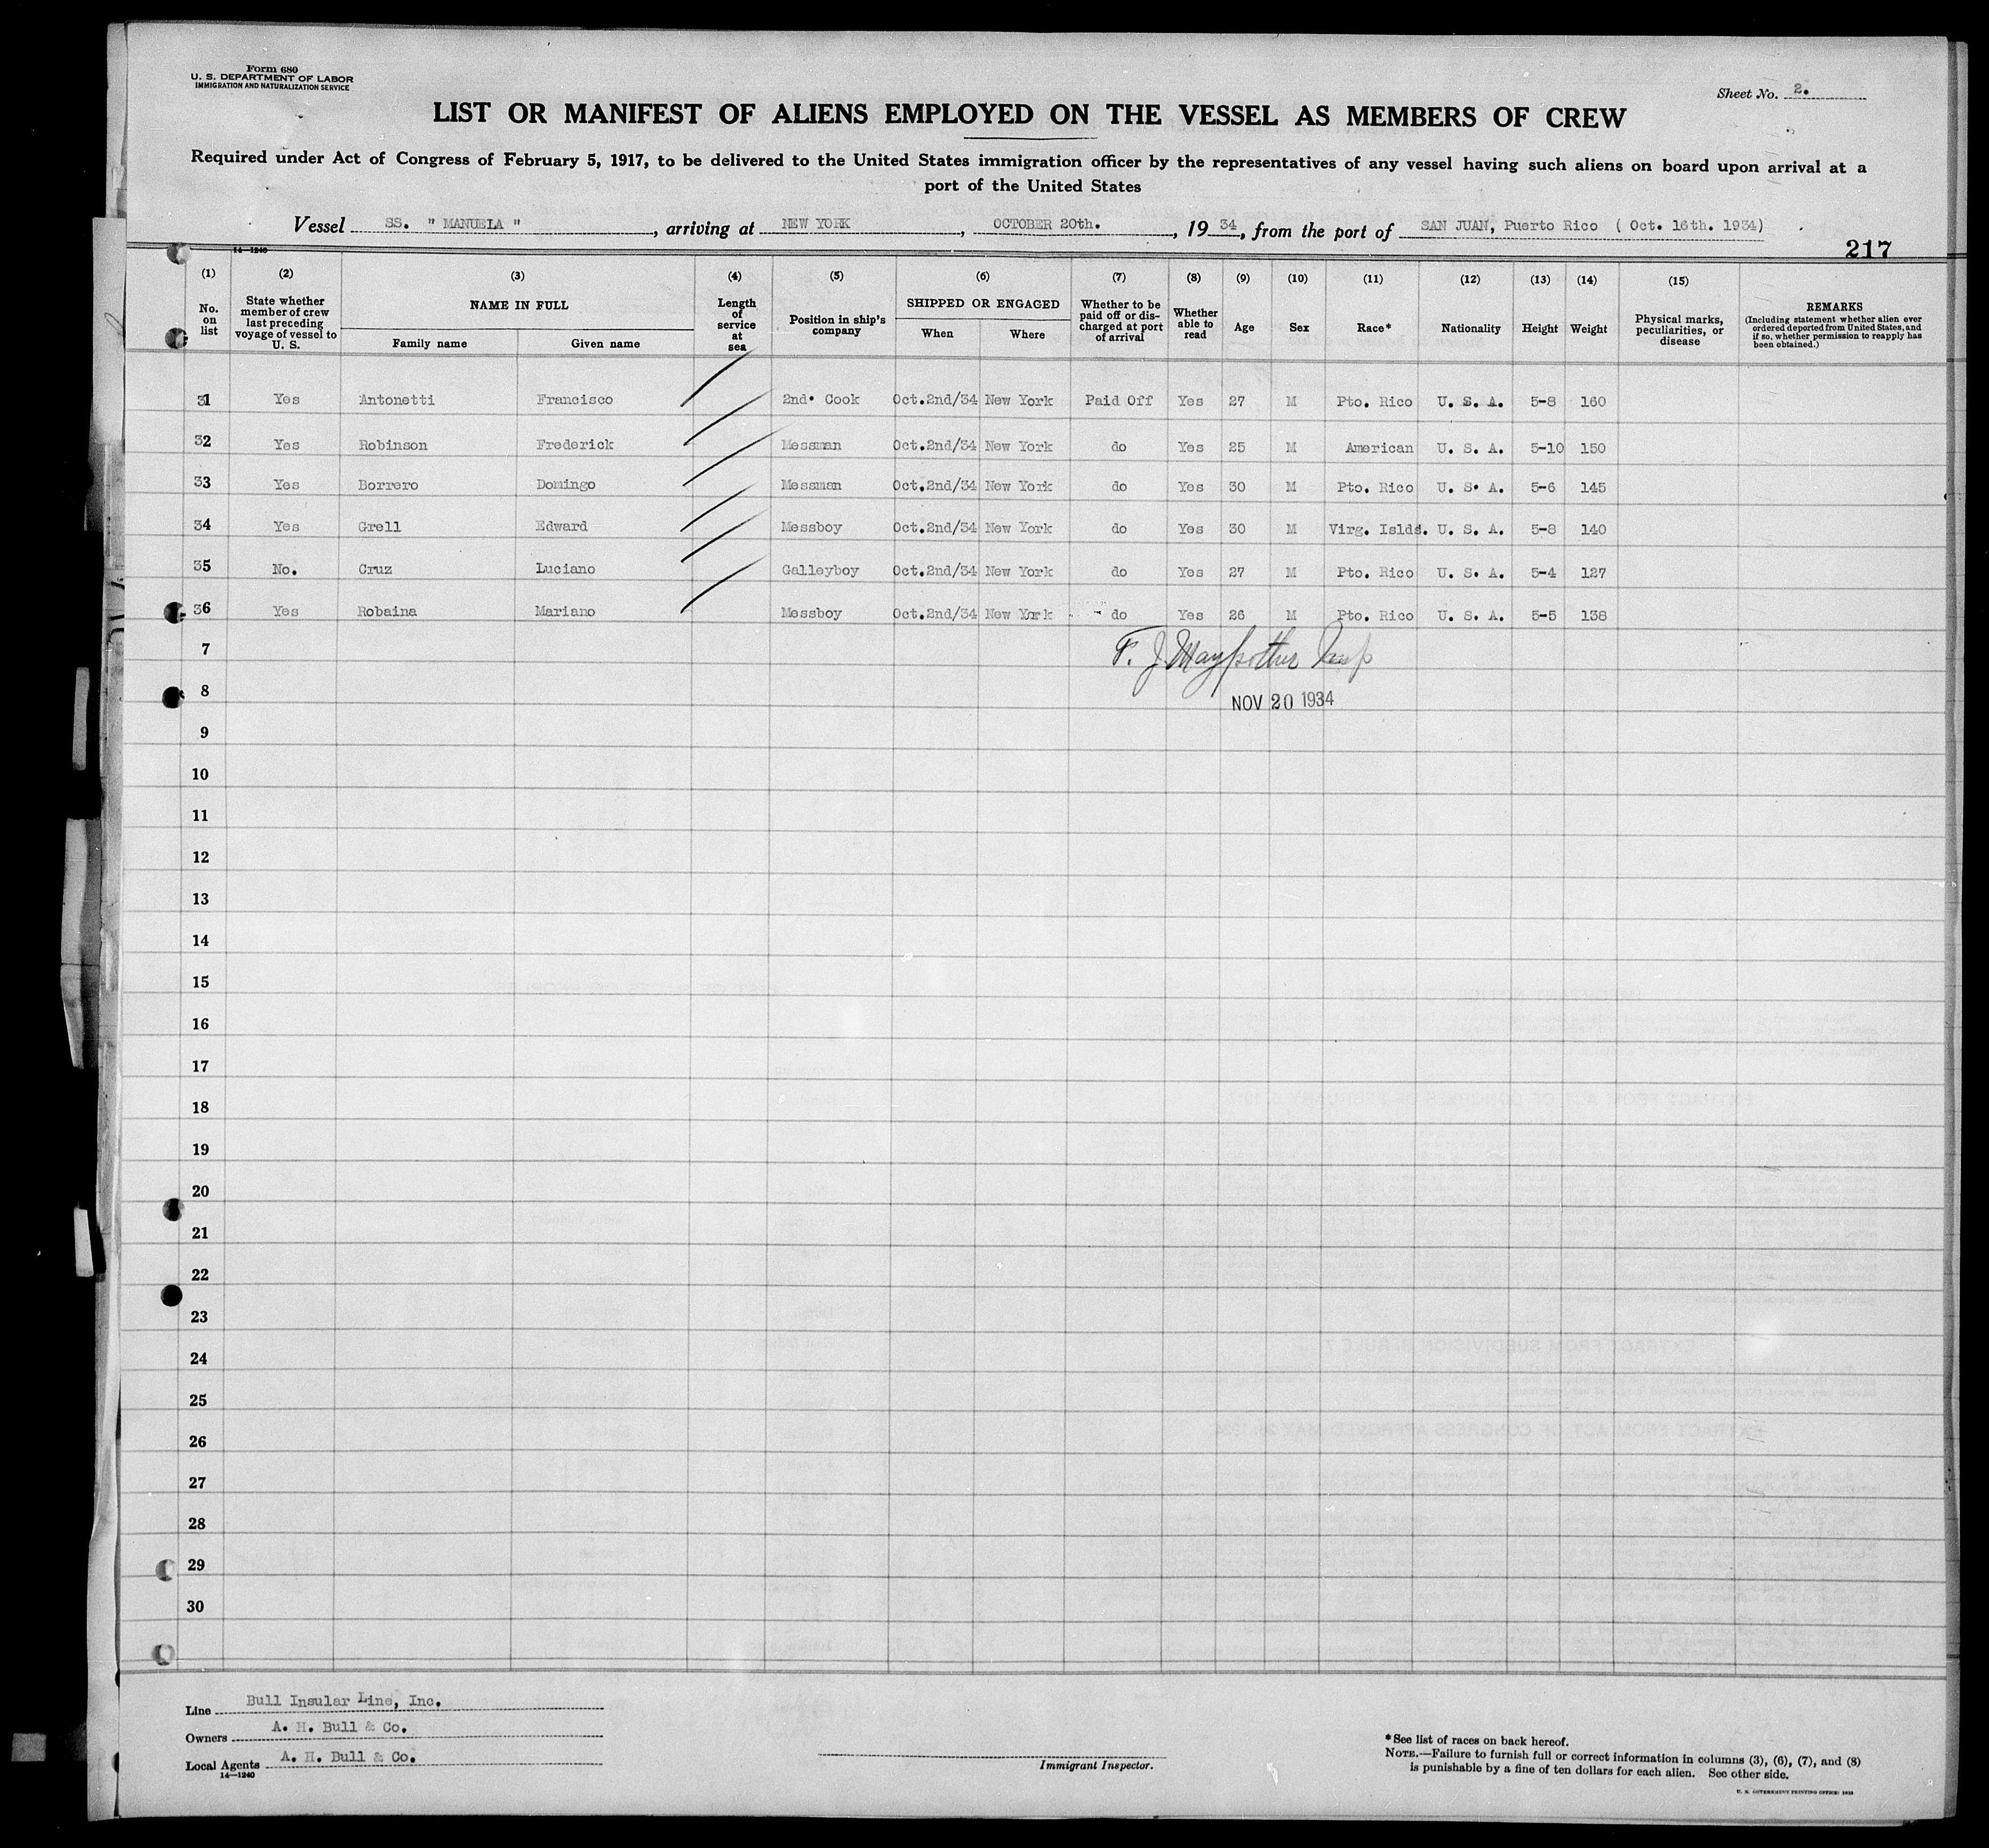 Form 680
U. S. DEPARTMENT OF LABOR
IMMIGRATION AND NATURALIZATION SERVICE
Sheet No. 2.
LIST OR MANIFEST OF ALIENS EMPLOYED ON THE VESSEL AS MEMBERS OF CREW
Required under Act of Congress of February 5, 1917, to be delivered to the United States immigration officer by the representatives of any vessel having such aliens on board upon arrival at a
port of the United States
Vessel SS. " MANUELA ", arriving at NEW YORK, OCTOBER 20th., 19 34, from the port of SAN JUAN, Puerto Rico ( Oct. 16th. 1934)
14—1240
217
(1) (2) (3) (4) (5) (6) (7) (8) (9) (10) (11) (12) (13) (14) (15)
No. on list
State whether member of crew last preceding voyage of vessel to U. S.
NAME IN FULL
Family name Given name
Length of service at sea
Position in ship's company
SHIPPED OR ENGAGED
When Where
Whether to be paid off or discharged at port of arrival
Whether able to read
Age
Sex
Race*
Nationality
Height
Weight
Physical marks, peculiarities, or disease
REMARKS
(Including statement whether alien ever ordered deported from United States, and if so, whether permission to reapply has been obtained.)
31 Yes Antonetti Francisco 2nd. Cook Oct.2nd/34 New York Paid Off Yes 27 M Pto. Rico U. S. A. 5-8 160
32 Yes Robinson Frederick Messman Oct.2nd/34 New York do Yes 25 M American U. S. A. 5-10 150
33 Yes Borrero Domingo Messman Oct.2nd/34 New York do Yes 30 M Pto. Rico U. S. A. 5-6 145
34 Yes Grell Edward Messboy Oct.2nd/34 New York do Yes 30 M Virg. Islds. U. S. A. 5-8 140
35 No. Cruz Luciano Galleyboy Oct.2nd/34 New York do Yes 27 M Pto. Rico U. S. A. 5-4 127
36 Yes Robaina Mariano Messboy Oct.2nd/34 New York do Yes 26 M Pto. Rico U. S. A. 5-5 138
7 F. J. Insp
8 NOV 20 1934
9
10
11
12
13
14
15
16
17
18
19
20
21
22
23
24
25
26
27
28
29
30
Line Bull Insular Line, Inc.
Owners A. H. Bull & Co.
Local Agents A. H. Bull & Co.
14—1240
Immigrant Inspector.
*See list of races on back hereof.
NOTE.—Failure to furnish full or correct information in columns (3), (6), (7), and (8)
is punishable by a fine of ten dollars for each alien. See other side.
U. S. GOVERNMENT PRINTING OFFICE: